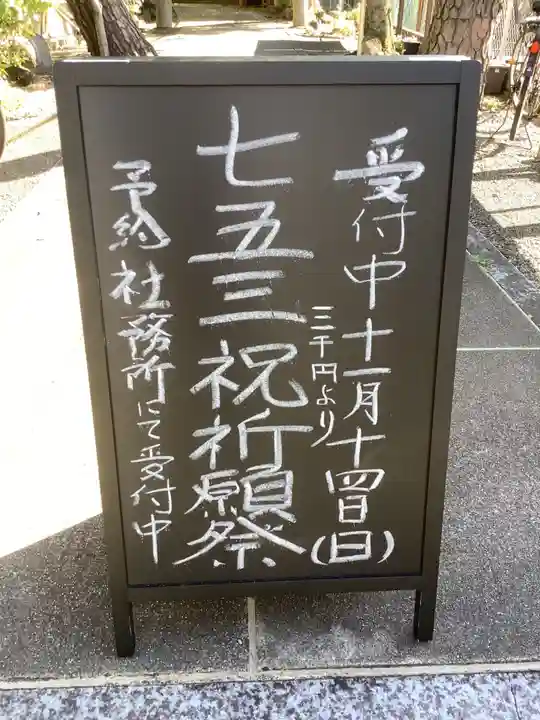 受付中 十一月十四日(日)
三千円より
七五三祝祈願祭
予約 社務所にて受付中